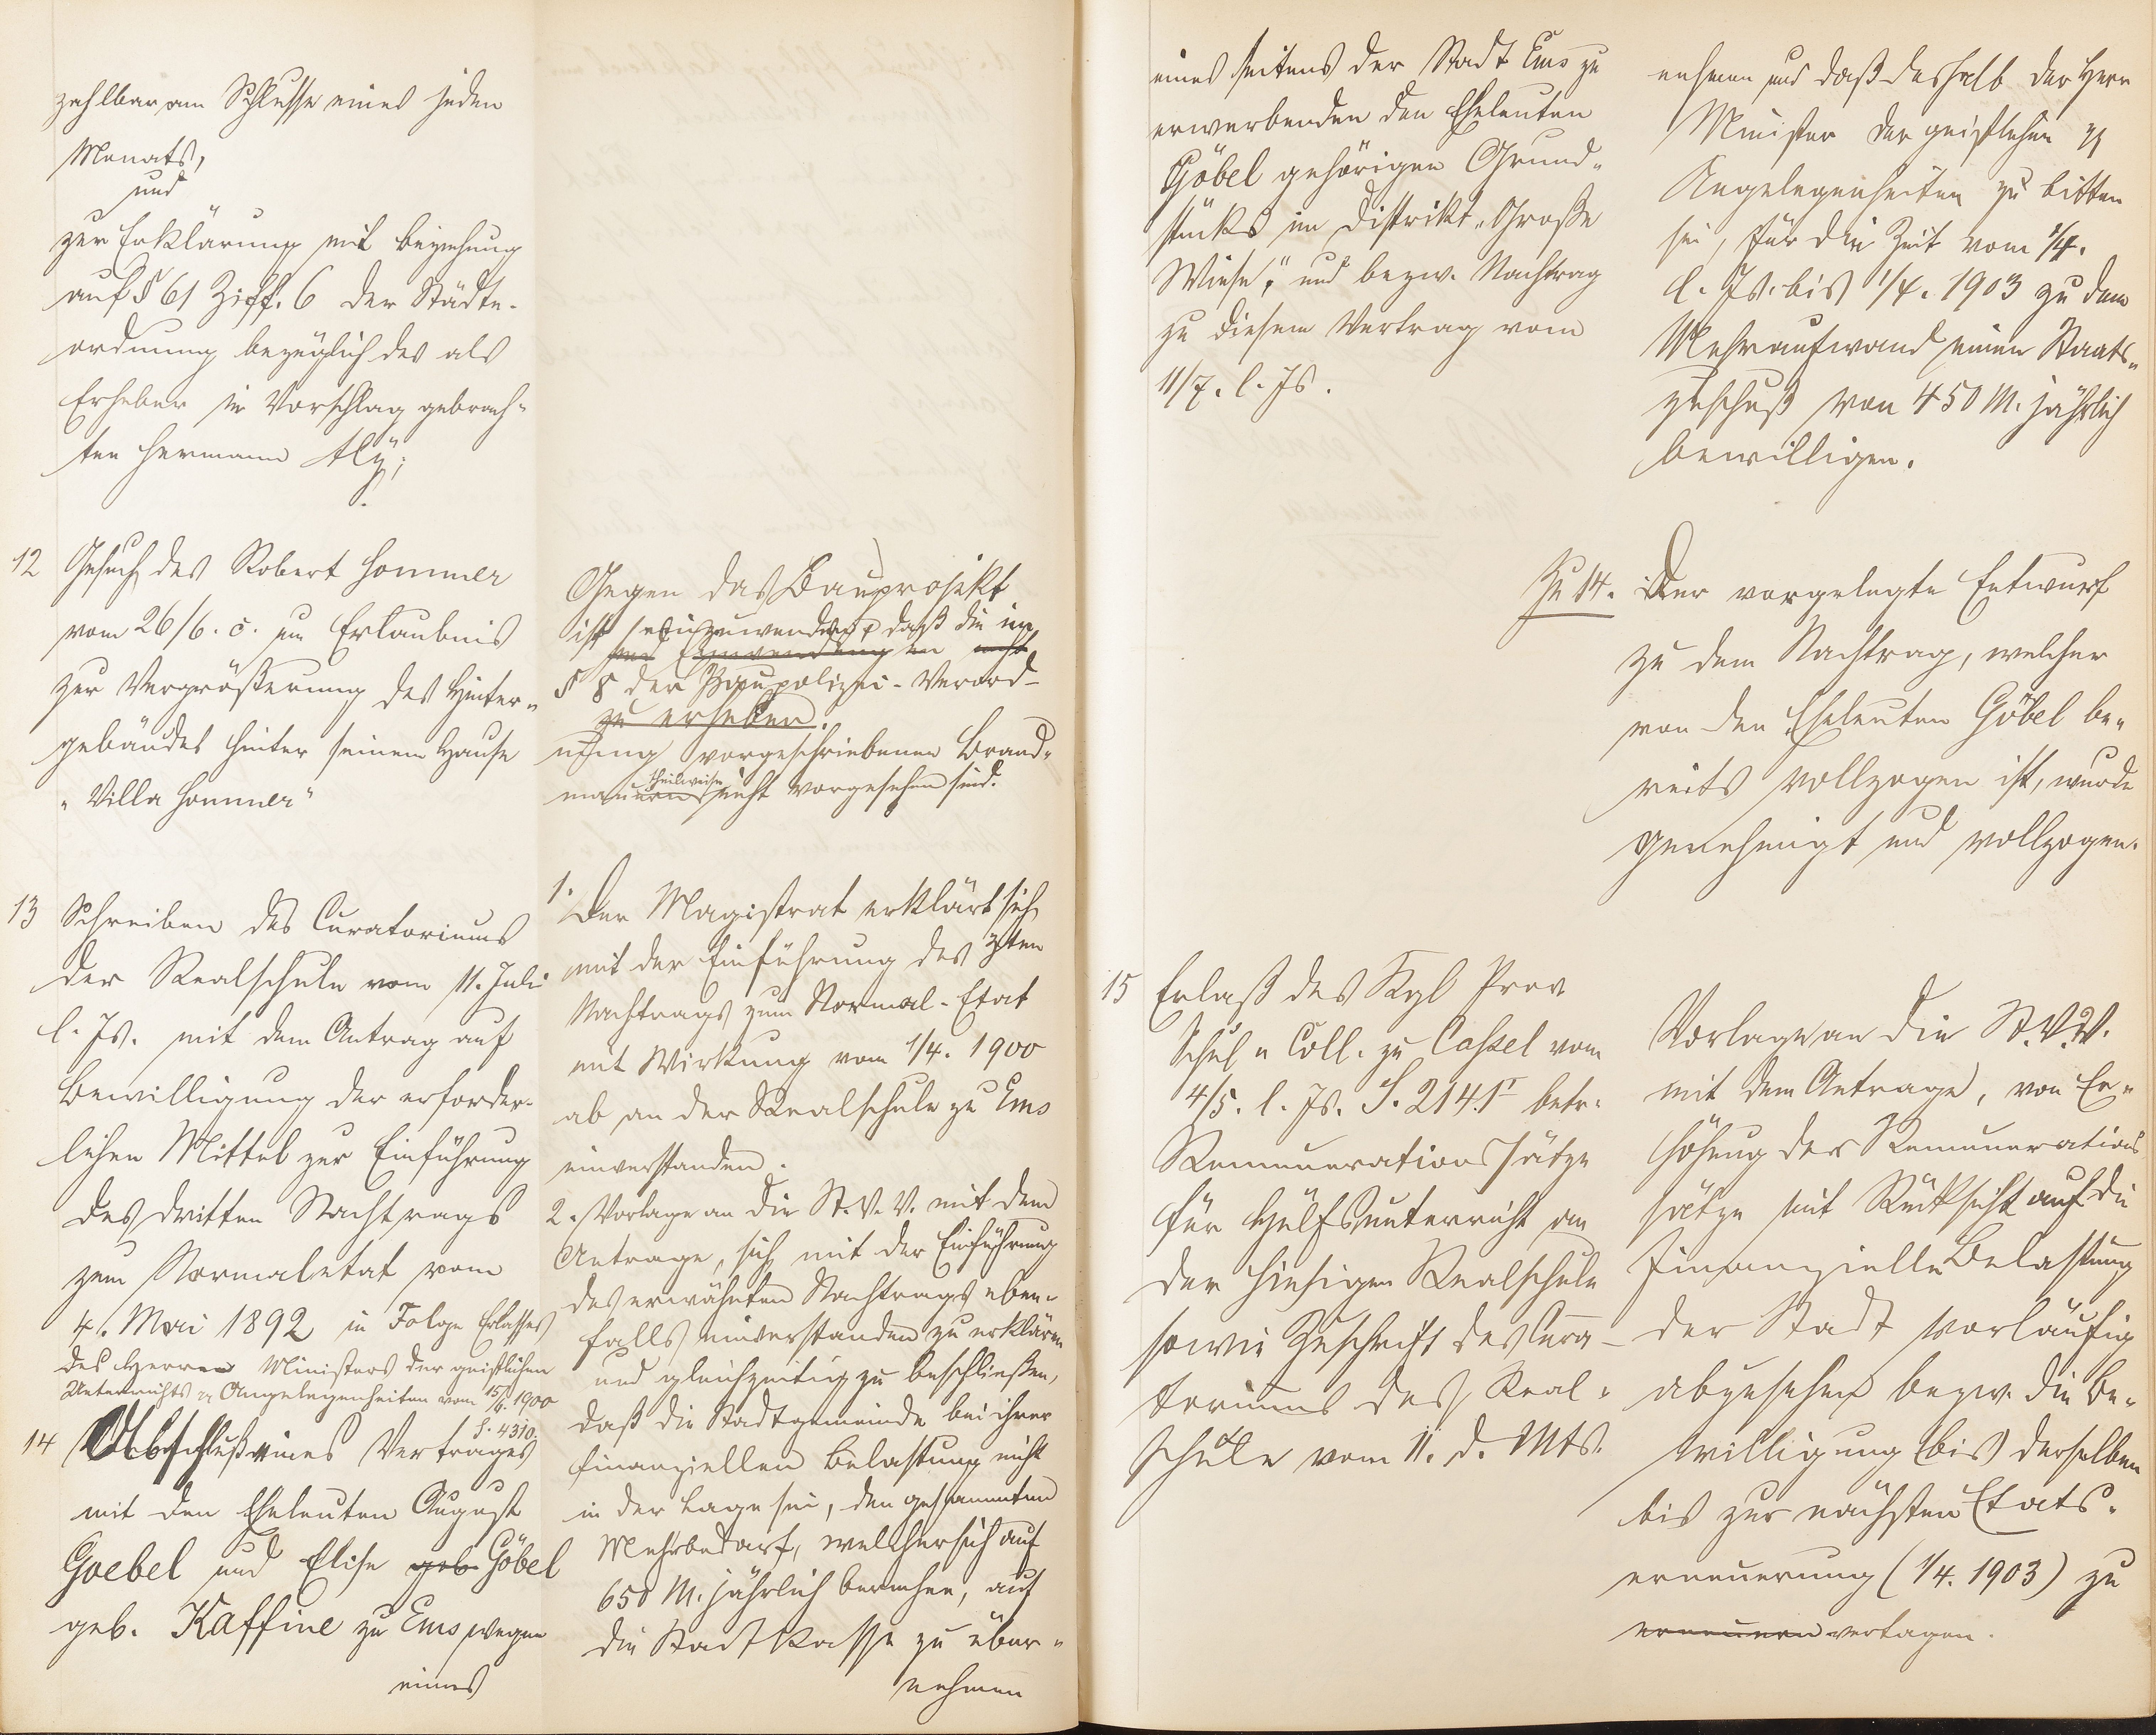 zahlbar am Schlusse eines jeden
Monats,
und
zur Erklärung mit Beziehung
auf § 61 Ziff. 6 der Städte-
ordnung bezüglich des als
Erheber in Vorschlag gebrach-
ten Hermann Aly;
12 Gesuch des Robert Hommer
vom 26/6. c. um Erlaubnis
zur Vergrößerung des Hinter-
gebäudes hinter seinem Hause
"Villa Hommer"
Gegen das Bauprojekt
ist einzuwenden, daß die im
sind Einwendungen nicht
§ 8 der Baupolizei-Verord-
zu erheben.
nung vorgeschriebenen Brand-
mauern theilweise nicht vorgesehen sind.
13 Schreiben des Curatoriums
der Realschule vom 11. Juli
l. Js. mit dem Antrag auf
Bewilligung der erforder-
lichen Mittel zur Einführung
des dritten Nachtrags
zum Normaletat vom
4. Mai 1892 in Folge Erlasses
des Herrn Ministers der geistlichen
Unterrichts Angelegenheiten vom 15/6. 1900
S. 4310.
1. Der Magistrat erklärt sich
mit der Einführung des 3ten
Nachtrags zum Normal-Etat
mit Wirkung vom 1/4. 1900
ab an der Realschule zu Ems
einverstanden.
2. Vorlage an die St. V. V. mit dem
Antrage, sich mit der Einführung
des erwähnten Nachtrags eben-
falls einverstanden zu erklären
und gleichzeitig zu beschließen,
daß die Stadtgemeinde bei ihrer
finanziellen Belastung nicht
in der Lage sei, den gesammten
Mehrbedarf, welcher sich auf
650 M. jährlich berechne, auf
die Stadtkasse zu über-
nehmen
14 Abschluß eines Vertrages
mit den Eheleuten August
Goebel und Elise geb. Göbel
geb. Kaffine zu Ems wegen
eines
eines seitens der Stadt Ems zu
erwerbenden den Eheleuten
Göbel gehörigen Grund-
stücks im Distrikt "Große
Wiese", und bezw. Nachtrag
zu diesem Vertrag vom
11/7. l. Js.
nehmen und daß deshalb der Herr
Minister der geistlichen
Angelegenheiten zu bitten
sei, für die Zeit vom 1/4.
l. Js. bis 1/4. 1903 zu dem
Mehraufwand einen Staats-
zuschuß von 450 M. jährlich
bewilligen.
Zu 14. Der vorgelegte Entwurf
zu dem Nachtrag, welcher
von den Eheleuten Göbel be-
reits vollzogen ist, wurde
genehmigt und vollzogen.
15 Erlaß des Kgl Prov
Schul Coll. zu Cassel vom
4/5. l. Js. S. 2141 betr.
Remunerationssätze
für Hülfsunterricht an
der hiesigen Realschule
sowie Zuschrift des Cura-
toriums der Real-
schule vom 11. d. Mts.
Vorlage an die St. V. V.
mit dem Antrage, von Er-
höhung der Remunerations
sätze mit Rücksicht auf die
finanzielle Belastung
der Stadt vorläufig
abzusehen bezw. die Be-
willigung bis derselben
bis zur nächsten Etats-
erneuerung (1/4. 1903) zu
erneuern vertagen.